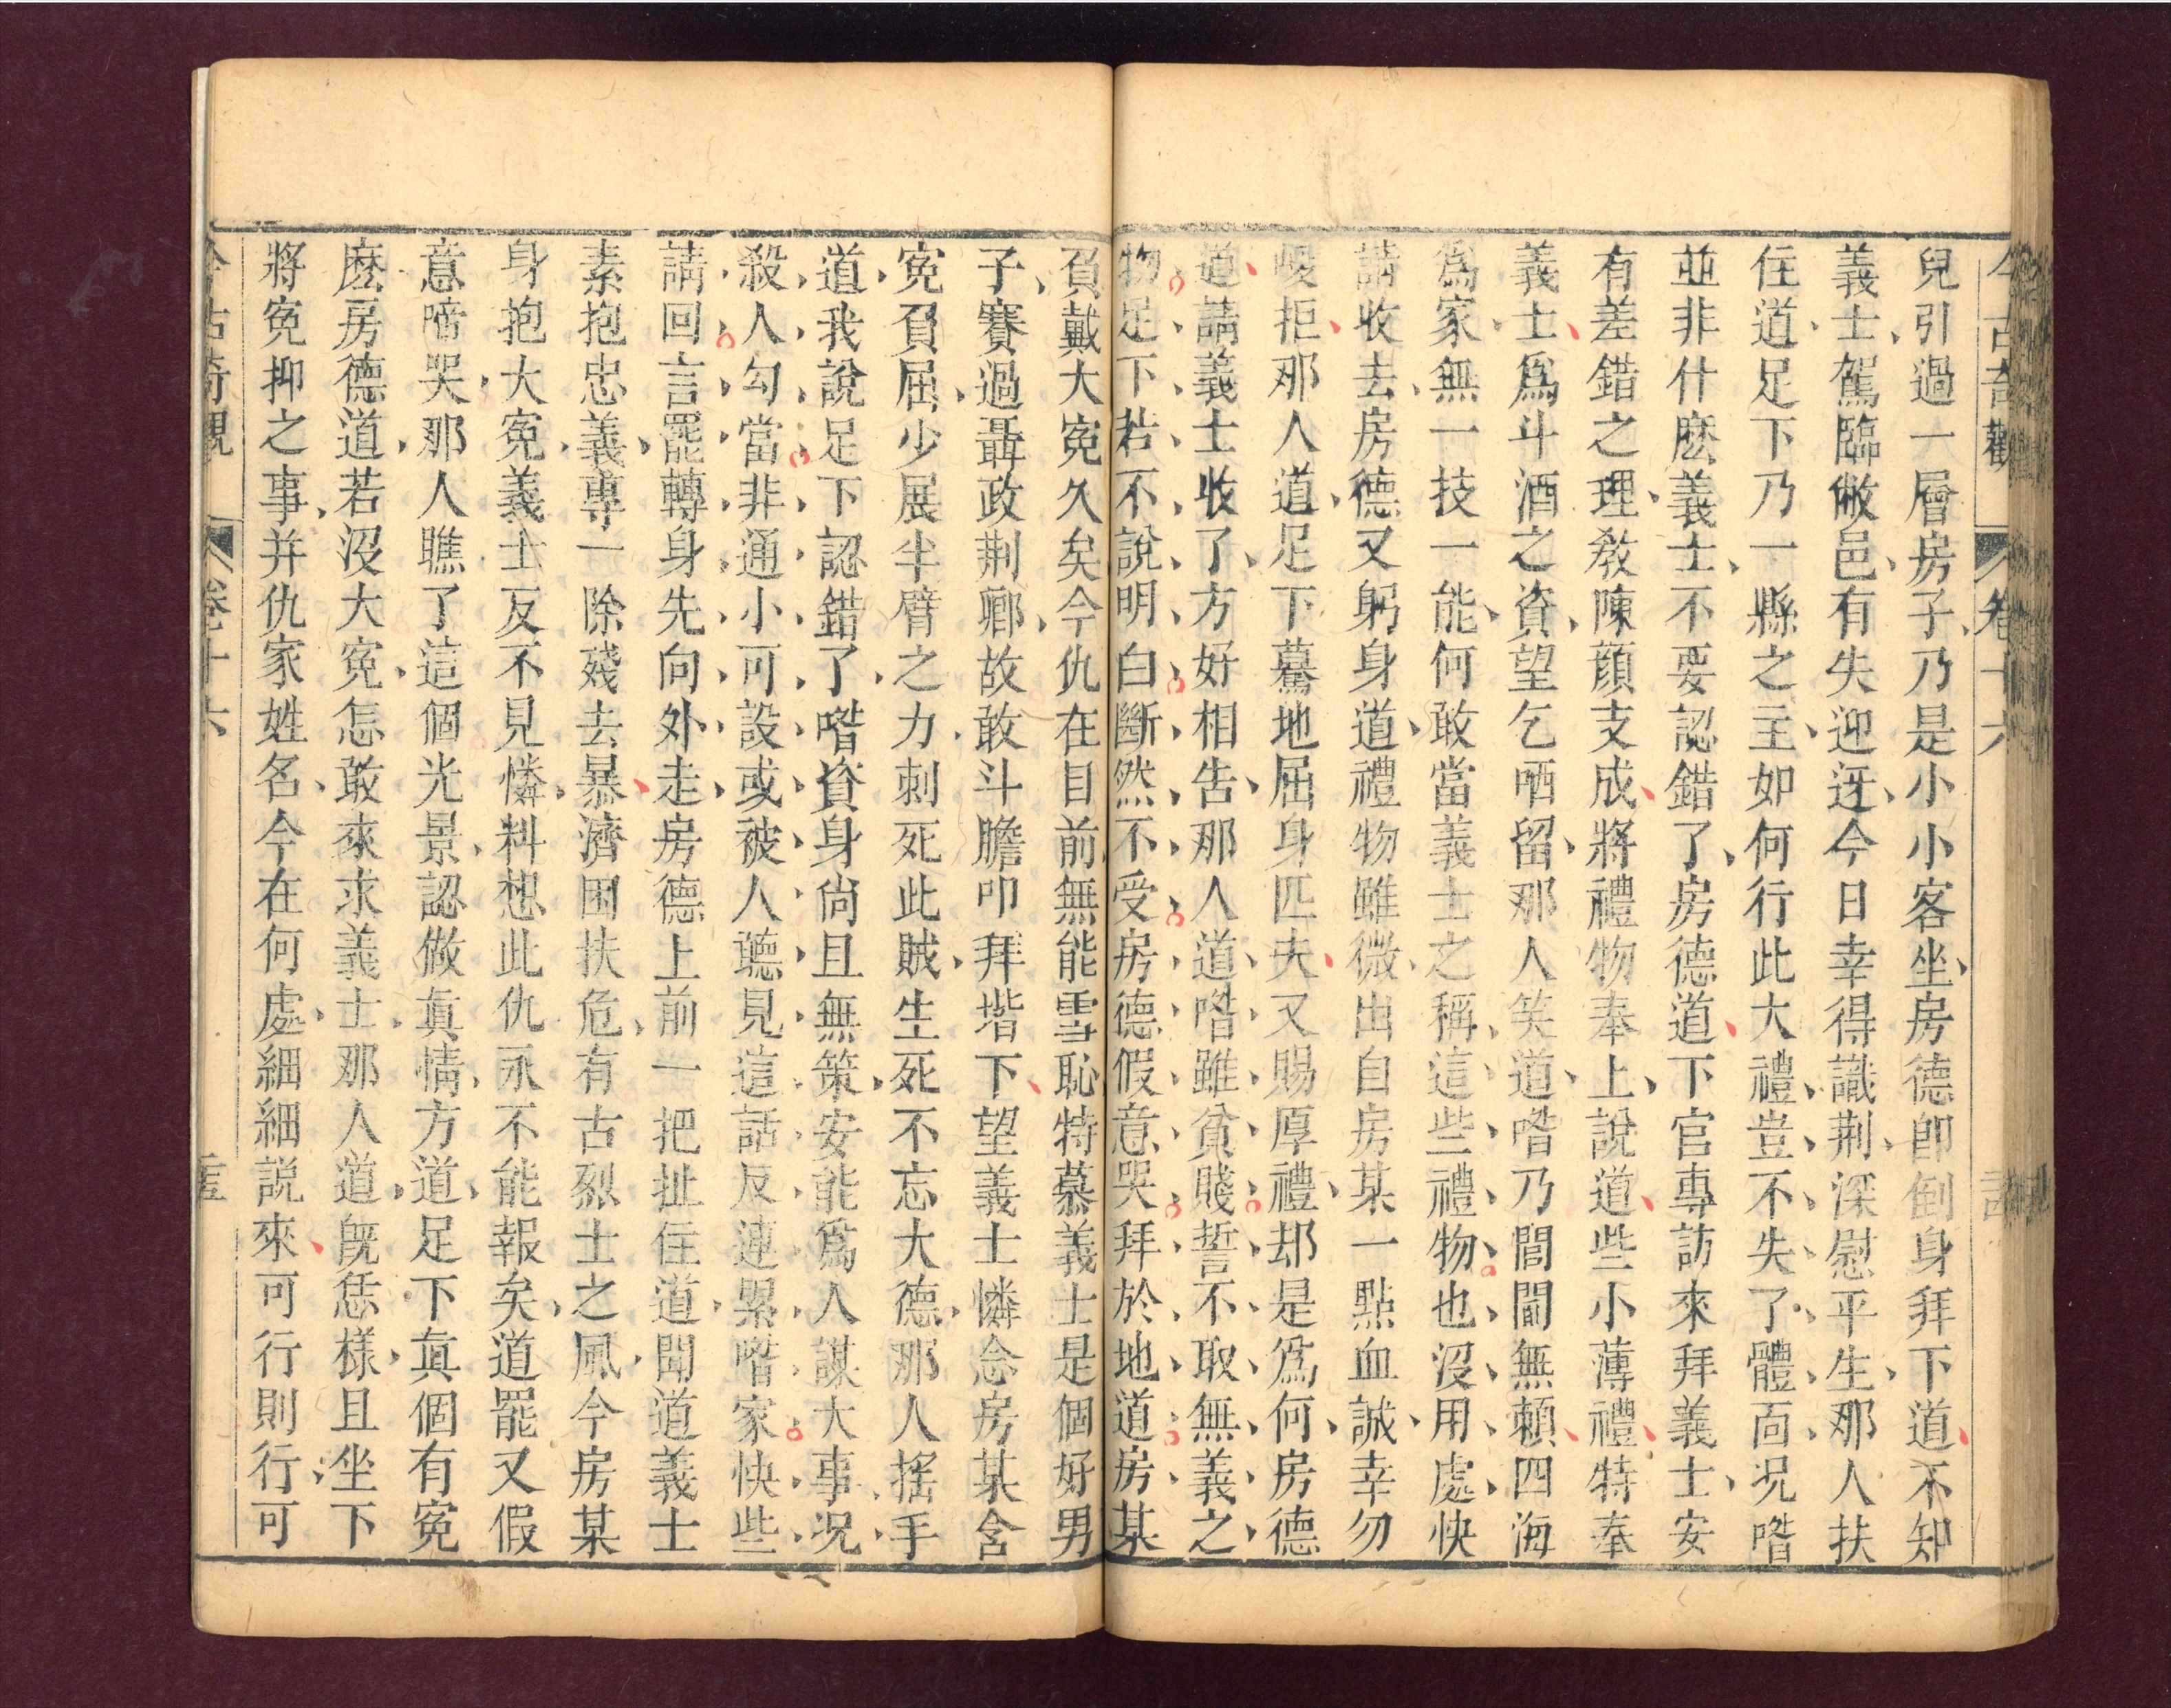 今古奇觀 卷十六
兒引過一層房子、乃是小小客坐、房德即倒身拜下道、不知
義士、駕臨敝邑、有失迎迓、今日幸得識荆、深慰平生、那人扶
住道、足下乃一縣之主、如何行此大禮、豈不失了體面、况喒
並非什麽義士、不要認錯了、房德道、下官專訪來拜義士、安
有差錯之理、教陳顔支成、將禮物奉上、說道、些小薄禮、特奉
義士、爲斗酒之資、望乞哂留、那人笑道、喒乃閭閻無賴、四海
爲家、無一技一能、何敢當義士之稱、這些禮物、也沒用處、快
請收去、房德又躬身道、禮物雖微、出自房某一點血誠、幸勿
峻拒、那人道、足下驀地屈身匹夫、又賜厚禮、却是爲何、房德
道、請義士收了、方好相告、那人道、喒雖貧賤、誓不取無義之
物、足下若不說明白、斷然不受、房德假意哭拜於地道、房某
負戴大寃久矣、今仇在目前、無能雪恥、特慕義士是個好男
子、賽過聶政荆卿、故敢斗膽叩拜堦下、望義士憐念房某含
寃負屈、少展半臂之力、刺死此賊、生死不忘大德、那人搖手
道、我說足下認錯了、喒資身尙且無策、安能爲人謀大事、况
殺人勾當、非通小可、設或被人聽見這話、反連累喒家、快些
請回、言罷、轉身先向外走、房德上前一把扯住道、聞道義士
素抱忠義、專一除殘去暴、濟困扶危、有古烈士之風、今房某
身抱大寃、義士反不見憐、料想此仇永不能報矣、道罷又假
意啼哭、那人瞧了這個光景、認做眞情、方道、足下眞個有寃
麽、房德道、若沒大寃、怎敢來求義士、那人道、旣恁樣、且坐下
將寃抑之事、并仇家姓名、今在何處、細細說來、可行則行、可
今古奇觀 卷十六